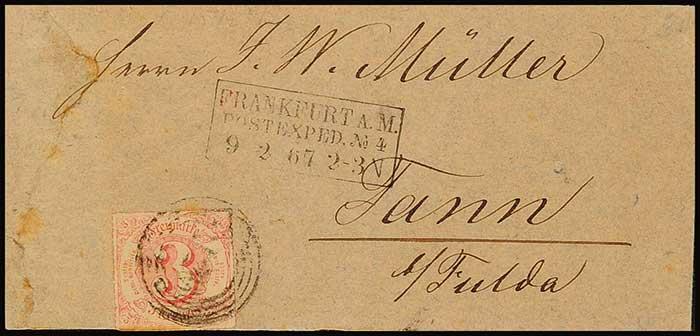 Herrn J. W. Müller
FRANKFURT A. M.
POSTEXPED. № 4
9 2 67 2-3 N
Tann
b/Fulda
Freimarke
3